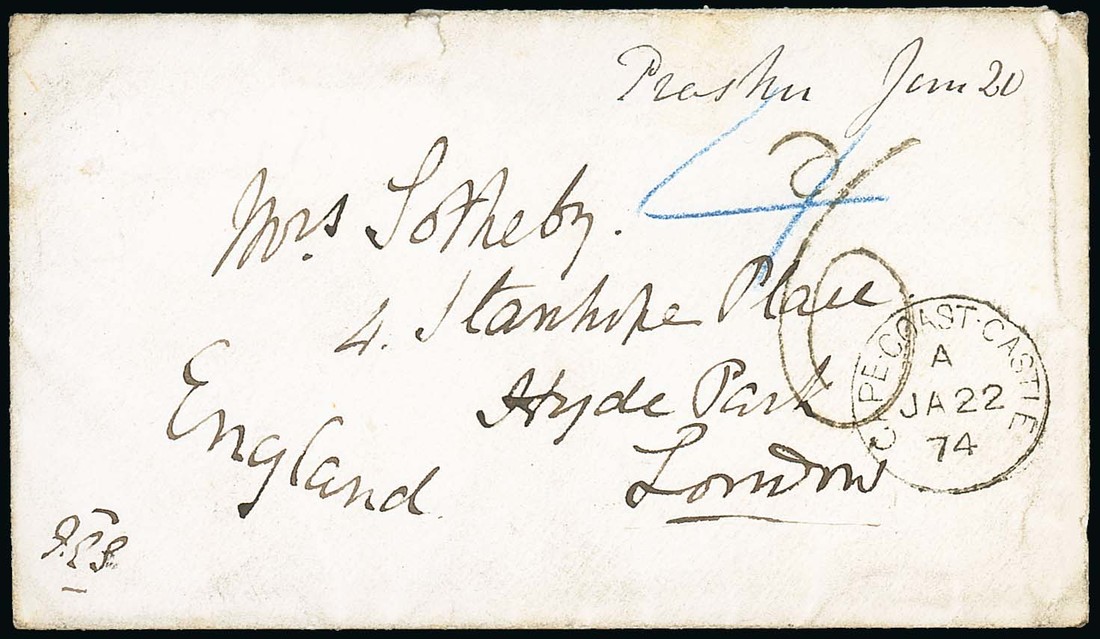 Prashu Jan 20
Mrs Sotheby.
4. Stanhope Place
Hyde Park
London
England
CAPE·COAST·CASTLE
A
JA 22
74
4
6